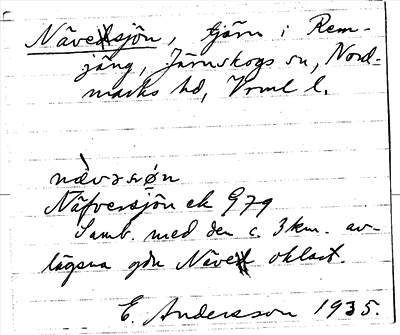 Näversjön, tjärn i Rem-
jäng, Järnskogs sn, Nord-
marks hd, Vrml l.
Näfversjön ek 979
Samb. med den c. 3 km. av-
lägsna gdn Näver oklart.
E. Andersson 1935.